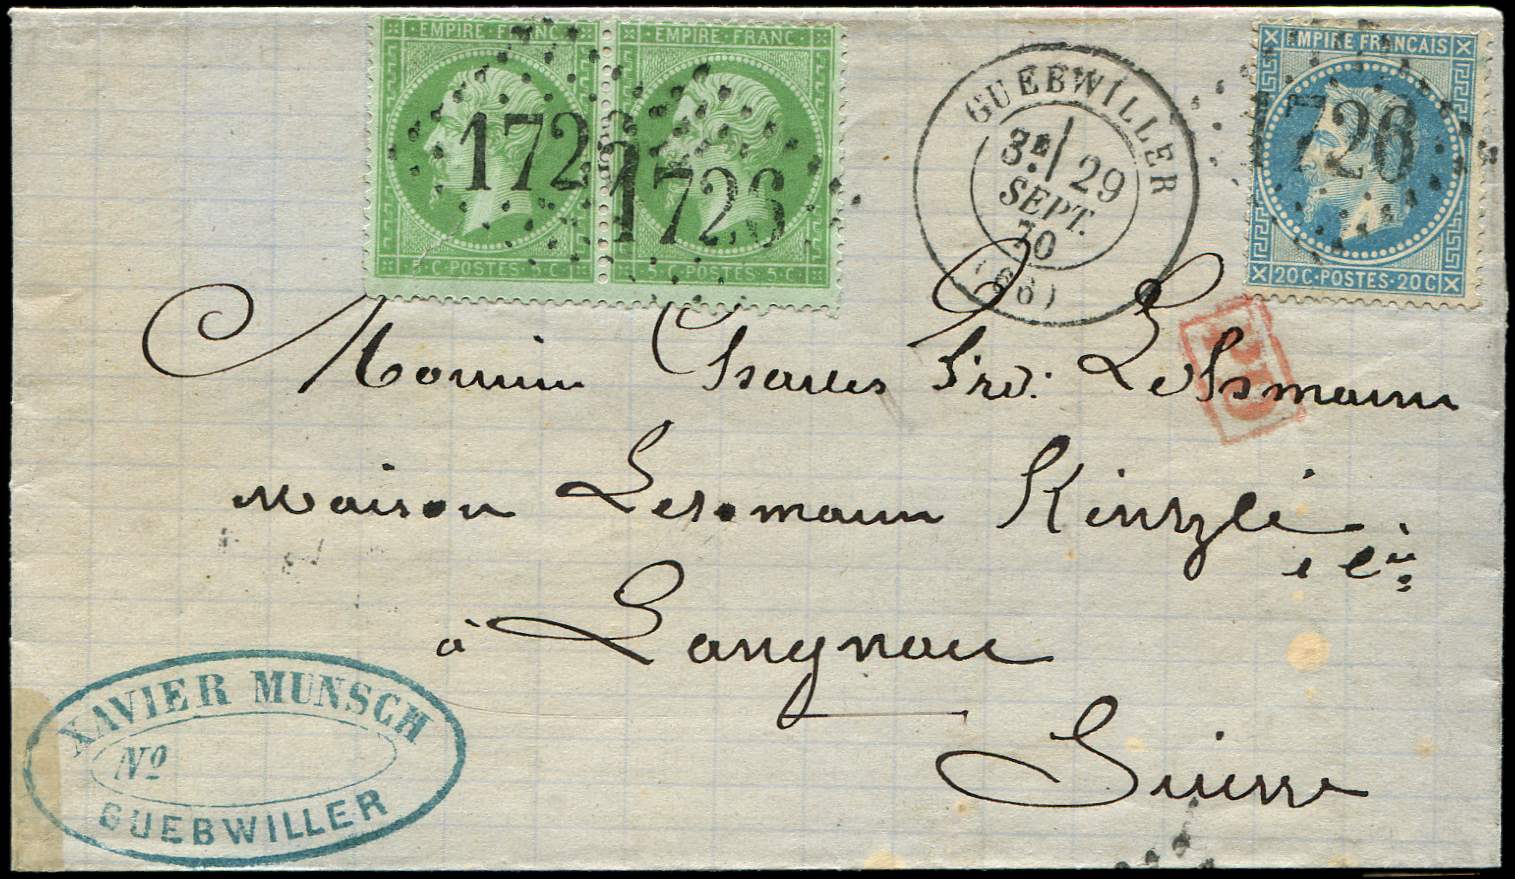 EMPIRE FRANC
5·C·POSTES·5·C
EMPIRE FRANC
5·C·POSTES·5·C
1726
1726
GUEBWILLER
3E/ 29
SEPT.
70
(66)
EMPIRE FRANCAIS
1726
20C·POSTES·20C
PD
Monsieur Charles Fréd: Lehmann
Maison Lehmann Kinzlé
& Cie
à Langnau
Suisse
XAVIER MUNSCH
No
GUEBWILLER